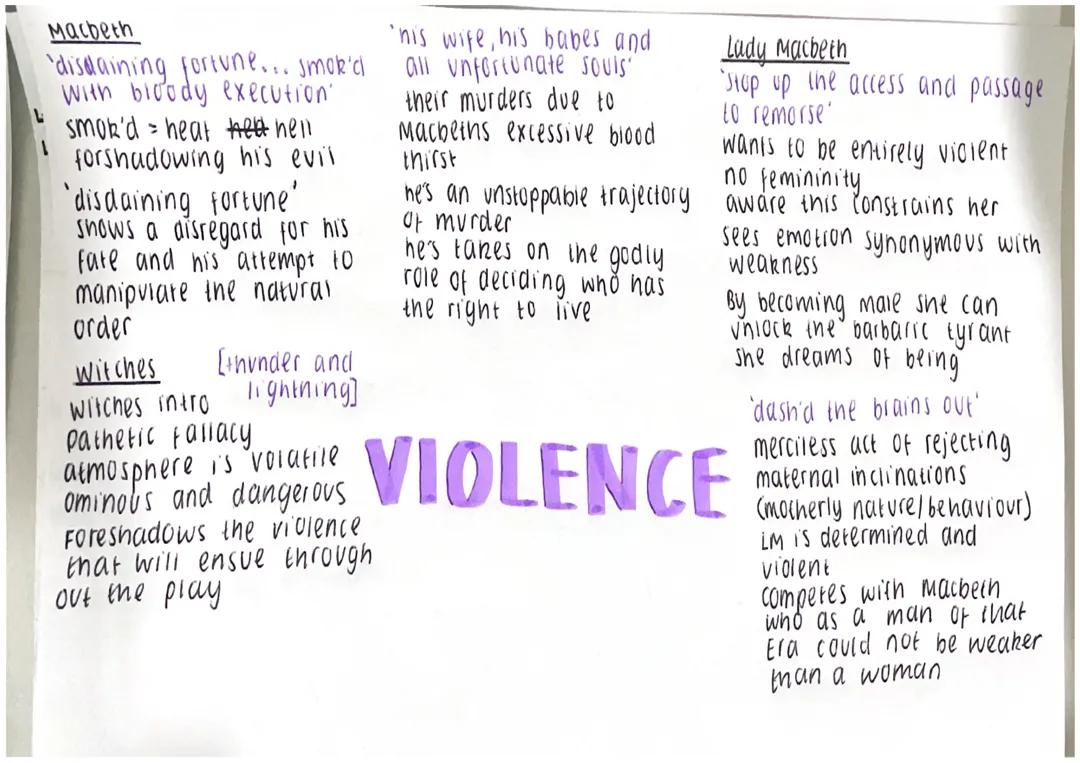 Macbeth
'disdaining fortune... smok'd
with bloody execution'
smok'd = heat hell
forshadowing his evil
'disdaining fortune'
shows a disregard for his
fate and his attempt to
manipulate the natural
order
Witches [thunder and
lightning]
witches intro
pathetic fallacy
atmosphere is volatile
ominous and dangerous
Foreshadows the violence
that will ensue through
out the play
'his wife, his babes and
all unfortunate souls'
their murders due to
Macbeths excessive blood
thirst
he's an unstoppable trajectory
of murder
he's takes on the godly
role of deciding who has
the right to live
VIOLENCE
Lady Macbeth
'stop up the access and passage
to remorse'
wants to be entirely violent
no femininity
aware this constrains her
sees emotion synonymous with
weakness
By becoming male she can
unlock the barbaric tyrant
she dreams of being
'dash'd the brains out'
merciless act of rejecting
maternal inclinations
(motherly nature/behaviour)
LM is determined and
violent
competes with Macbeth
who as a man of that
Era could not be weaker
than a woman